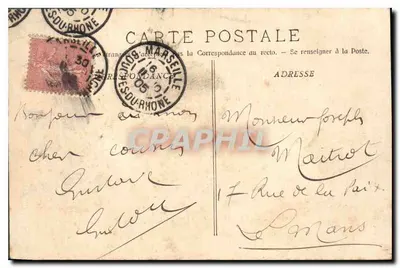 CARTE POSTALE
la Correspondance au recto. — Se renseigner à la Poste.
ADRESSE
MARSEILLE
BOUCHES-DU-RHONE
16
05
Bonjour à mon
cher cousin
Gustave
Monsieur Joseph
Maitrot
17 Rue de la Paix
Le Mans
CARPHIL